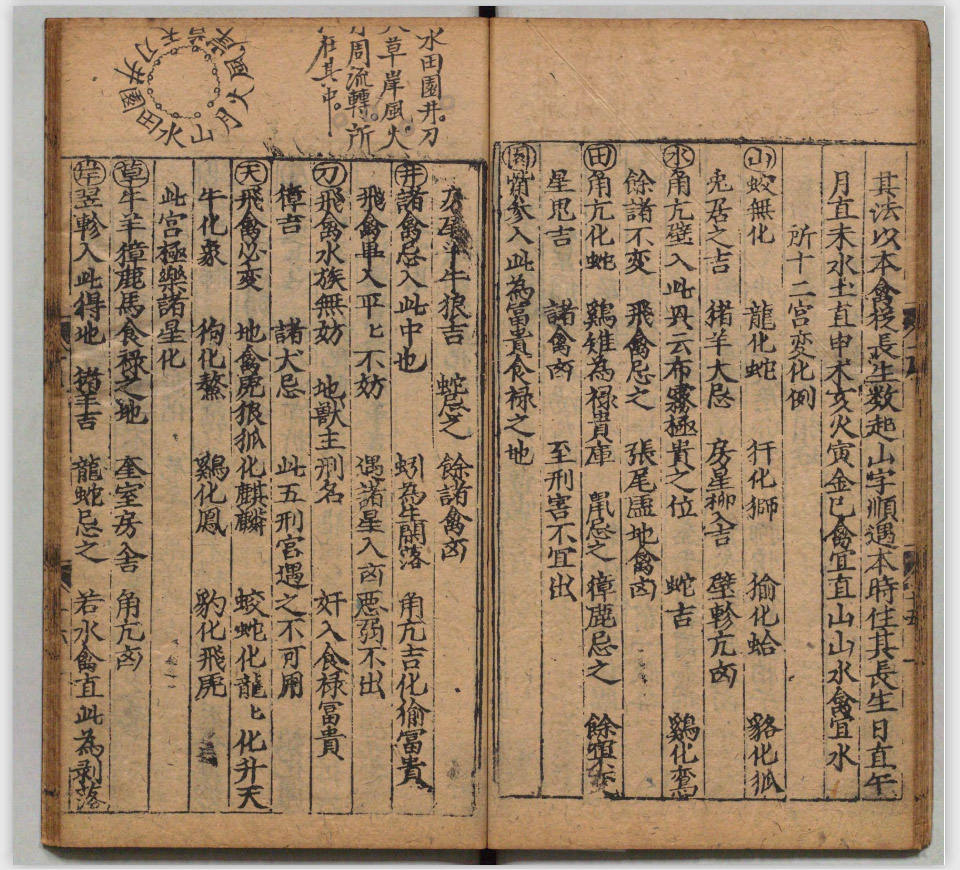 其法以本禽從長生數起山字順遇本時住其長生日直午
月直未水土直申木亥火寅金巳禽宜直山山水禽宜水
所十二宮变化例
山 蛟無化 龍化蛇 犴化獅 㺄化蛤 貉化狐
兎居之吉 猪羊大忌 房星柳舎吉 壁軫亢凶
水 角亢壁入此興云布霧極貴之位 蛇吉 鷄化鸞
餘諸不変 飛禽忌之 張尾虚地禽凶
田 角亢化蛇 鷄雉為禄貴庫 鼠忌之 獐鹿忌之
星鬼吉 諸禽凶 至刑害不宜出
園 觜参入此為富貴食禄之地
牛狼吉 蛇忌之 餘諸禽凶
井 諸禽忌入此中也 蚓為生開落 角亢吉化㺄富貴
飛禽畢入平〻不妨 遇諸星入凶惡弱不出
刀 飛禽水族無妨 地獸主刑名 奸入食禄富貴
獐吉 諸犬忌 此五刑宮遇之不可用
天 飛禽必変 地禽虎狼狐化麒麟 蛟蛇化龍〻化升天
牛化象 狗化獒 鷄化鳳 豹化飛虎
此宮極樂諸星化
草 牛羊獐鹿馬食禄之地 奎室房舎吉 角亢凶
岸 翌軫入此得地 猪羊吉 龍蛇忌之 若水禽直此為剥落
水田園井刀
天草岸風火
月周流轉所
在其中
山水田園井刀天草岸風火月